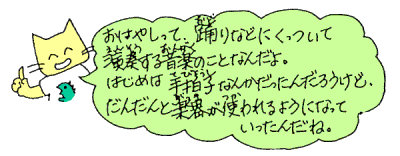 おはやしって、踊りなどにくっついて
演奏する音楽のことなんだよ。
はじめは手拍子なんかだったんだろうけど、
だんだんと楽器が使われるようになって
いったんだね。